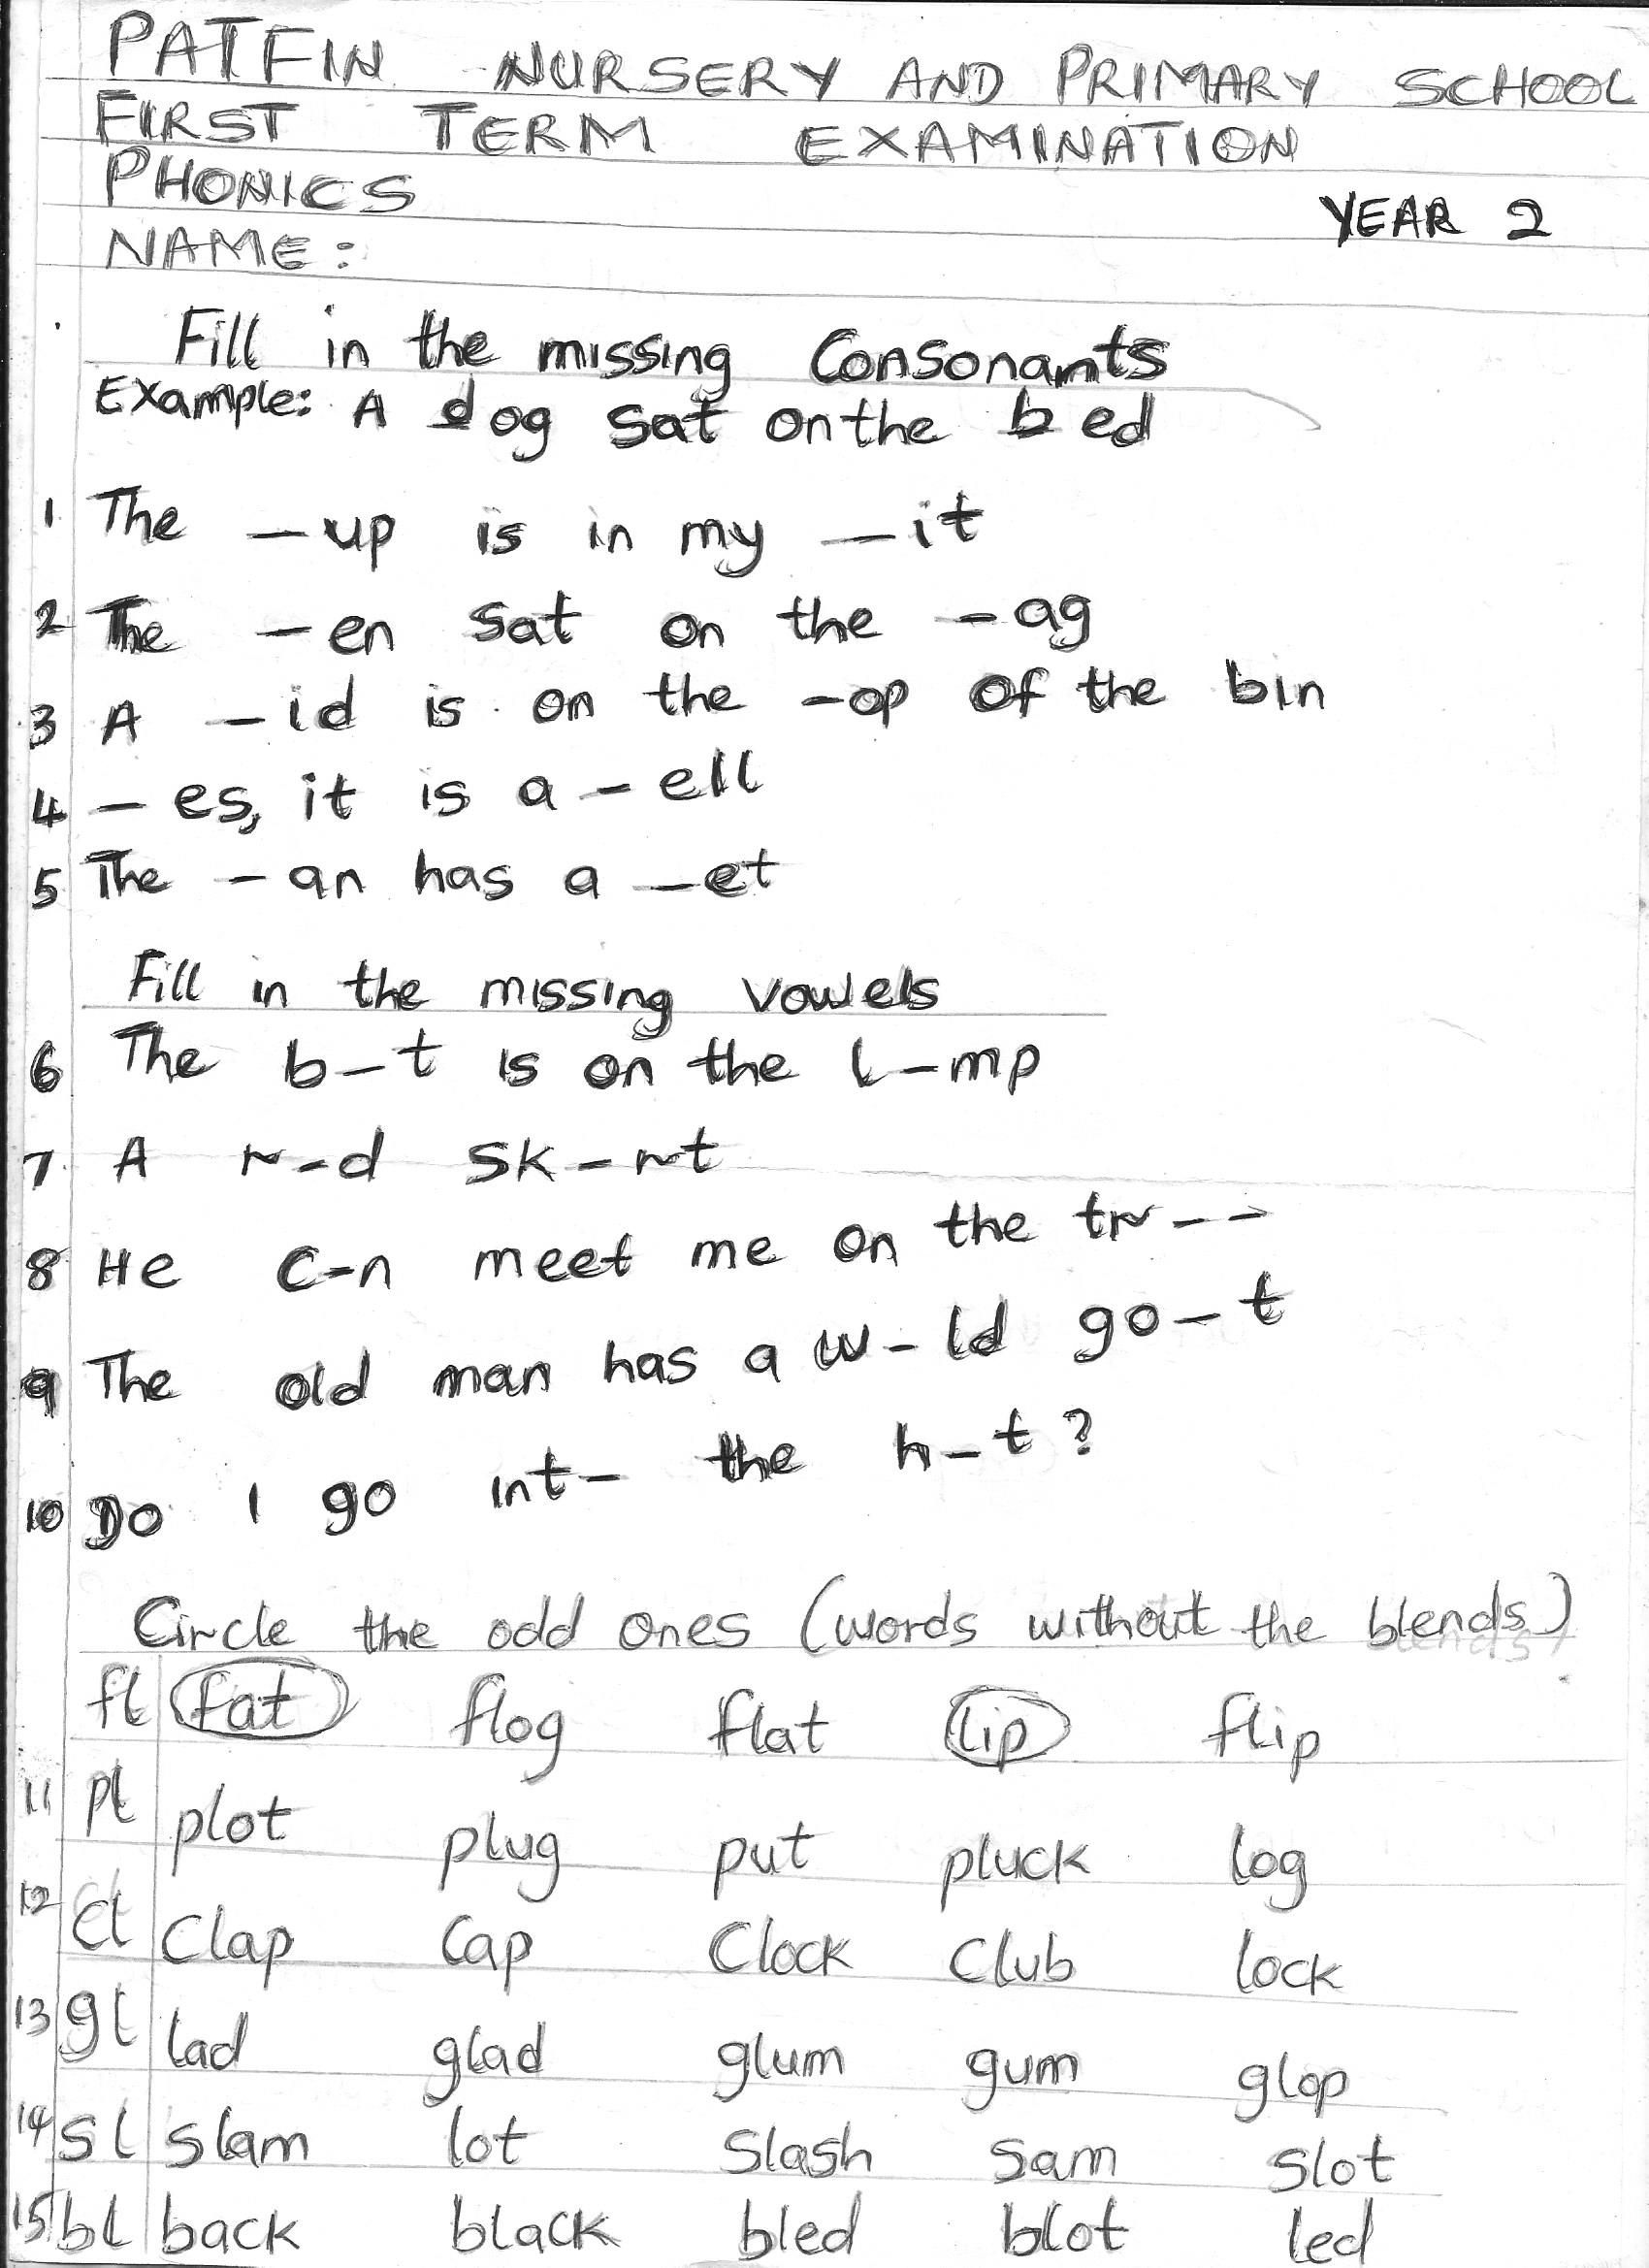 PATFIN NURSERY AND PRIMARY SCHOOL
FIRST TERM EXAMINATION
PHONICS
YEAR 2
NAME:
Fill in the missing Consonants
Example: A dog sat on the bed
1 The _up is in my _it
2 The _en sat on the _ag
3 A _id is on the _op of the bin
4 _es, it is a _ell
5 The _an has a _et
Fill in the missing vowels
6 The b_t is on the l_mp
7. A r_d sk_rt
8 He c_n meet me on the tr_ _
9 The old man has a w_ld go_t
10 Do I go int_ the h_t?
Circle the odd ones (words without the blends)
fl fat flog flat lip flip
11 pl plot plug put pluck log
12 cl clap cap clock club lock
13 gl lad glad glum gum glop
14 sl slam lot slash sam slot
15 bl back black bled blot led